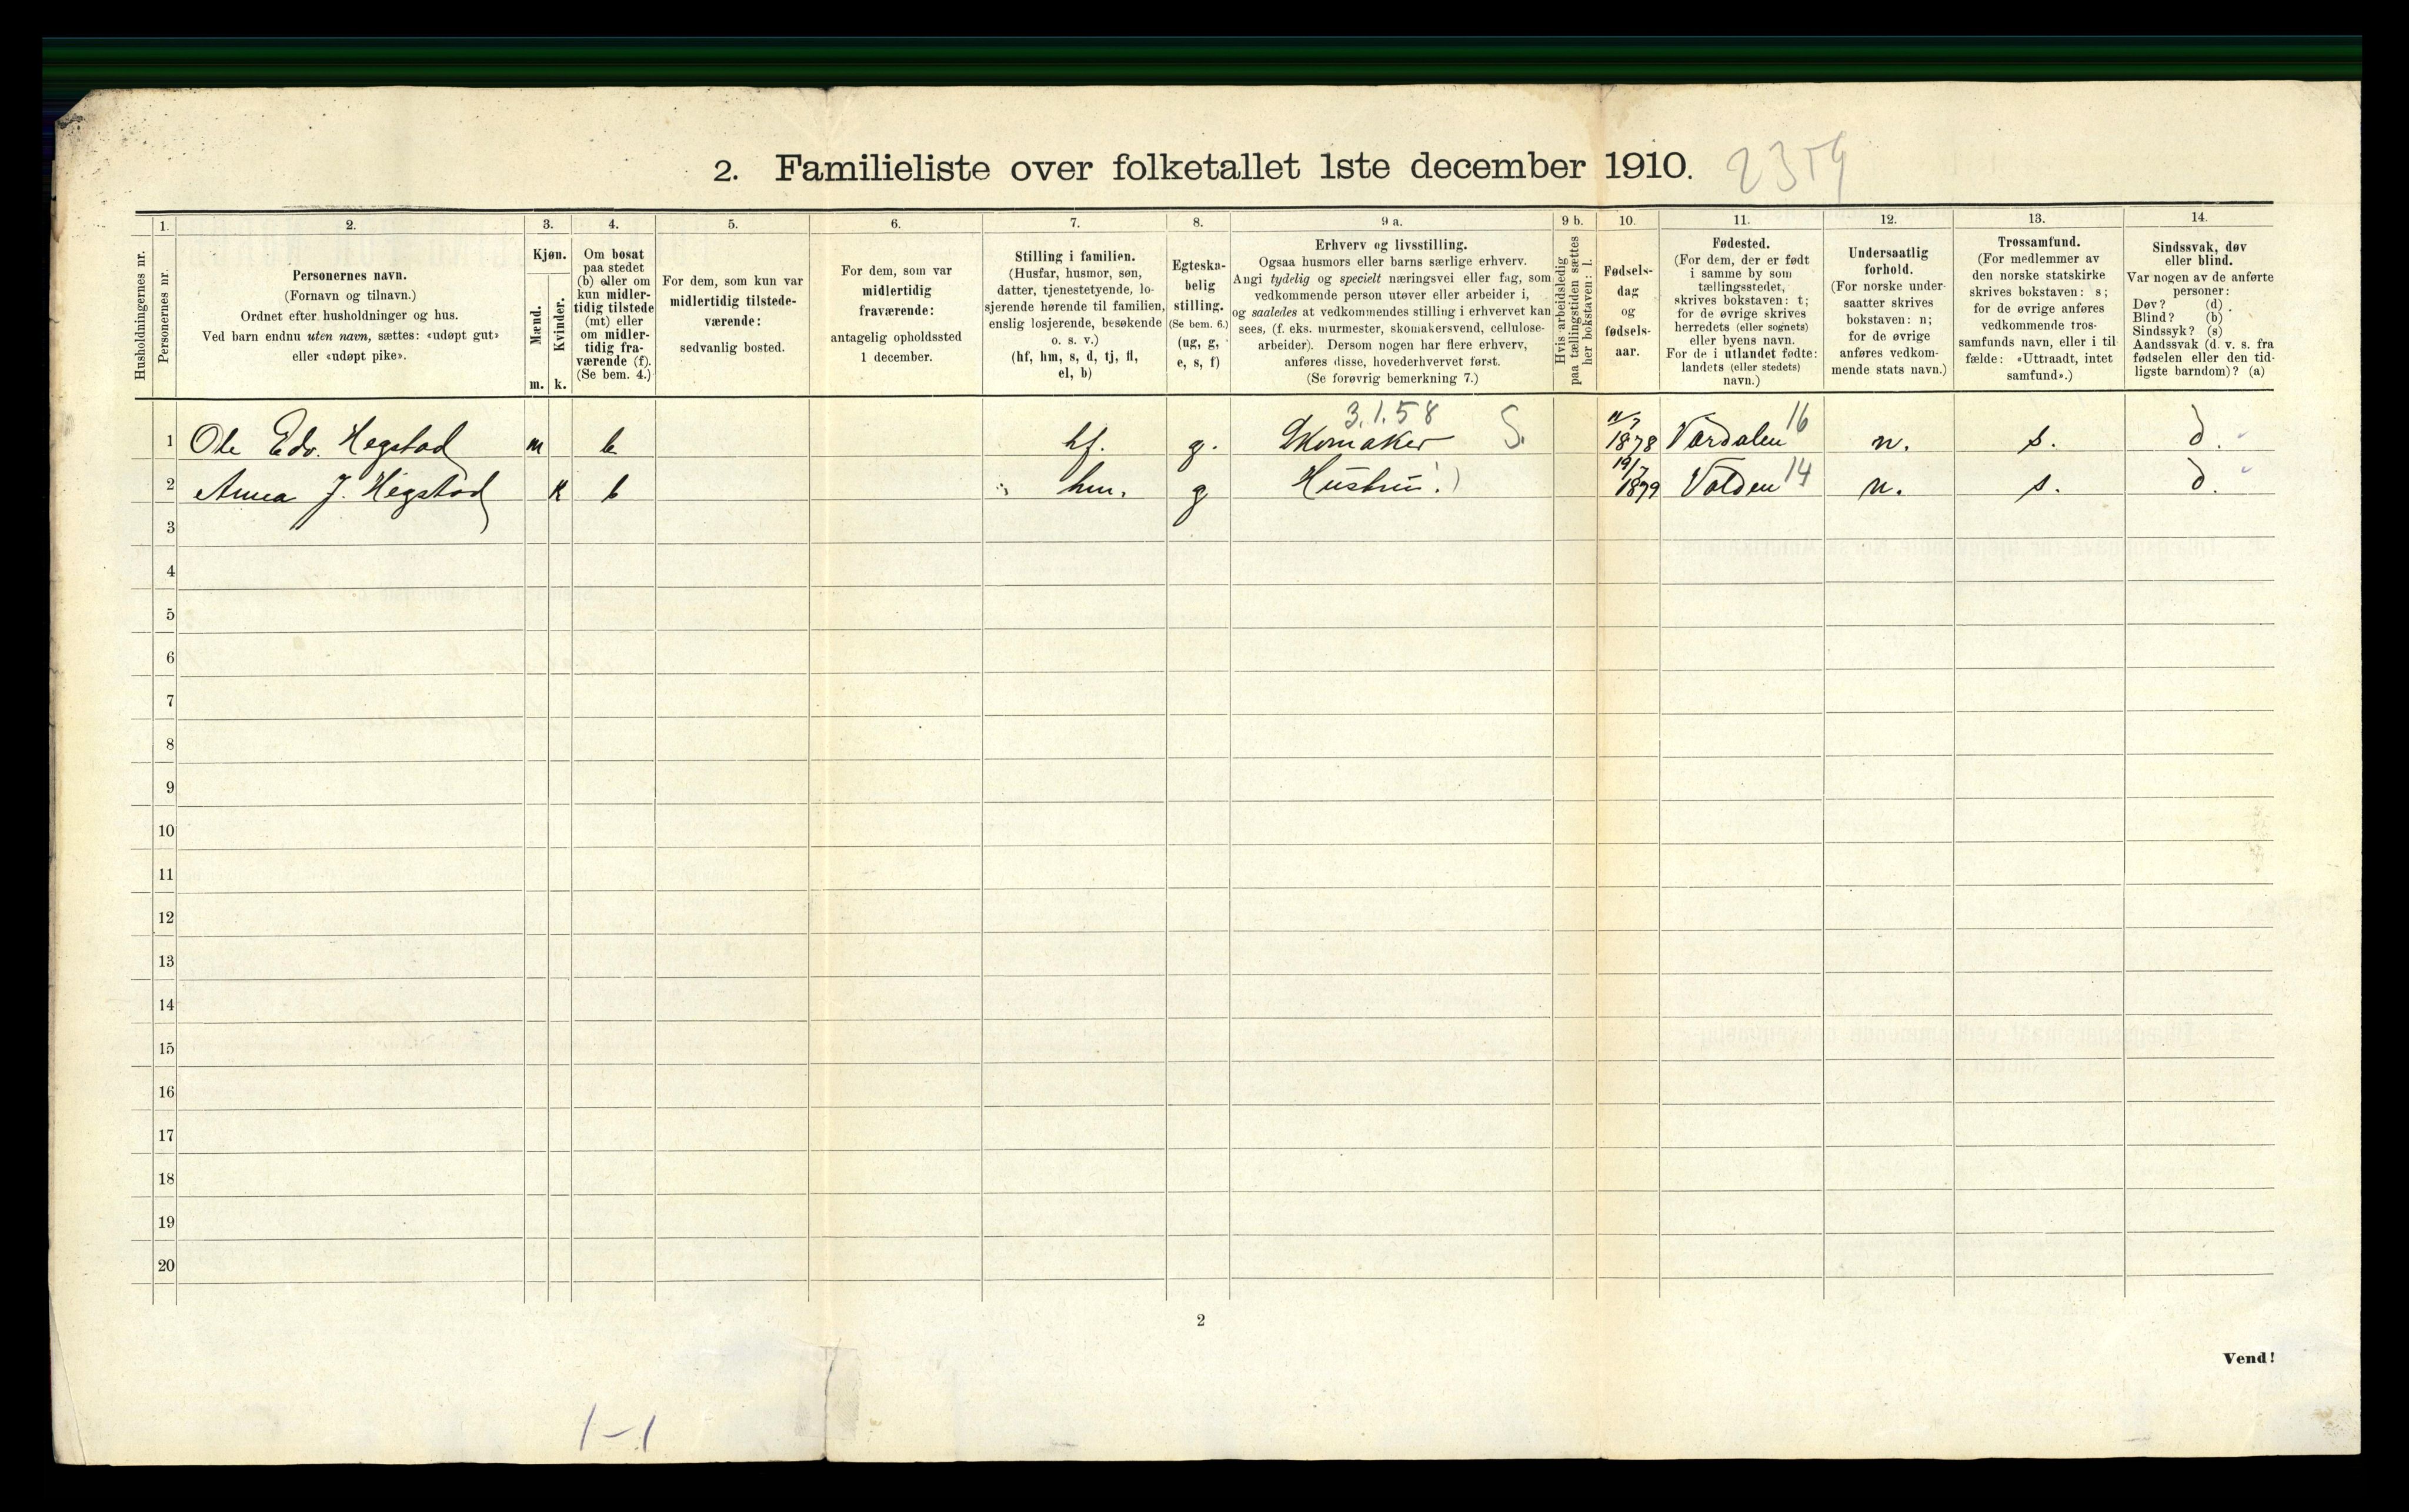 2. Familieliste over folketallet 1ste december 1910. 2359
1. 2. 3. 4. 5. 6. 7. 8. 9 a. 9 b. 10. 11. 12. 13. 14.
Husholdningernes nr.
Personernes nr.
Personernes navn.
(Fornavn og tilnavn.)
Ordnet efter husholdninger og hus.
Ved barn endnu uten navn, sættes: «udøpt gut»
eller «udøpt pike».
Kjøn.
Mænd.
Kvinder.
m. k.
Om bosat
paa stedet
(b) eller om
kun midler-
tidig tilstede
(mt) eller
om midler-
tidig fra-
værende (f).
(Se bem. 4.)
For dem, som kun var
midlertidig tilstede-
værende:
sedvanlig bosted.
For dem, som var
midlertidig
fraværende:
antagelig opholdssted
1 december.
Stilling i familien.
(Husfar, husmor, søn,
datter, tjenestetyende, lo-
sjerende hørende til familien,
enslig losjerende, besøkende
o. s. v.)
(hf, hm, s, d, tj, fl,
el, b)
Egteska-
belig
stilling.
(Se bem. 6.)
(ug, g,
e, s, f)
Erhverv og livsstilling.
Ogsaa husmors eller barns særlige erhverv.
Angi tydelig og specielt næringsvei eller fag, som
vedkommende person utøver eller arbeider i,
og saaledes at vedkommendes stilling i erhvervet kan
sees, (f. eks. murmester, skomakersvend, cellulose-
arbeider). Dersom nogen har flere erhverv,
anføres disse, hovederhvervet først.
(Se forøvrig bemerkning 7.)
Hvis arbeidsledig
paa tællingstiden sættes
her bokstaven: l.
Fødsels-
dag
og
fødsels-
aar.
Fødested.
(For dem, der er født
i samme by som
tællingsstedet,
skrives bokstaven: t;
for de øvrige skrives
herredets (eller sognets)
eller byens navn.
For de i utlandet fødte:
landets (eller stedets)
navn.)
Undersaatlig
forhold.
(For norske under-
saatter skrives
bokstaven: n;
for de øvrige
anføres vedkom-
mende stats navn.)
Trossamfund.
(For medlemmer av
den norske statskirke
skrives bokstaven: s;
for de øvrige anføres
vedkommende tros-
samfunds navn, eller i til-
fælde: «Uttraadt, intet
samfund».)
Sindssvak, døv
eller blind.
Var nogen av de anførte
personer:
Døv? (d)
Blind? (b)
Sindssyk? (s)
Aandssvak (d. v. s. fra
fødselen eller den tid-
ligste barndom)? (a)
3.1.58
1 Ole Edv. Hegstad m b hf. g. Skomaker S. 11/7 1878 Værdalen 16 n. s. d.
2 Anna J. Hegstad k b hm. g Hustru. 19/7 1879 Volden 14 n. s. d.
3
4
5
6
7
8
9
10
11
12
13
14
15
16
17
18
19
20
2
Vend!
1-1